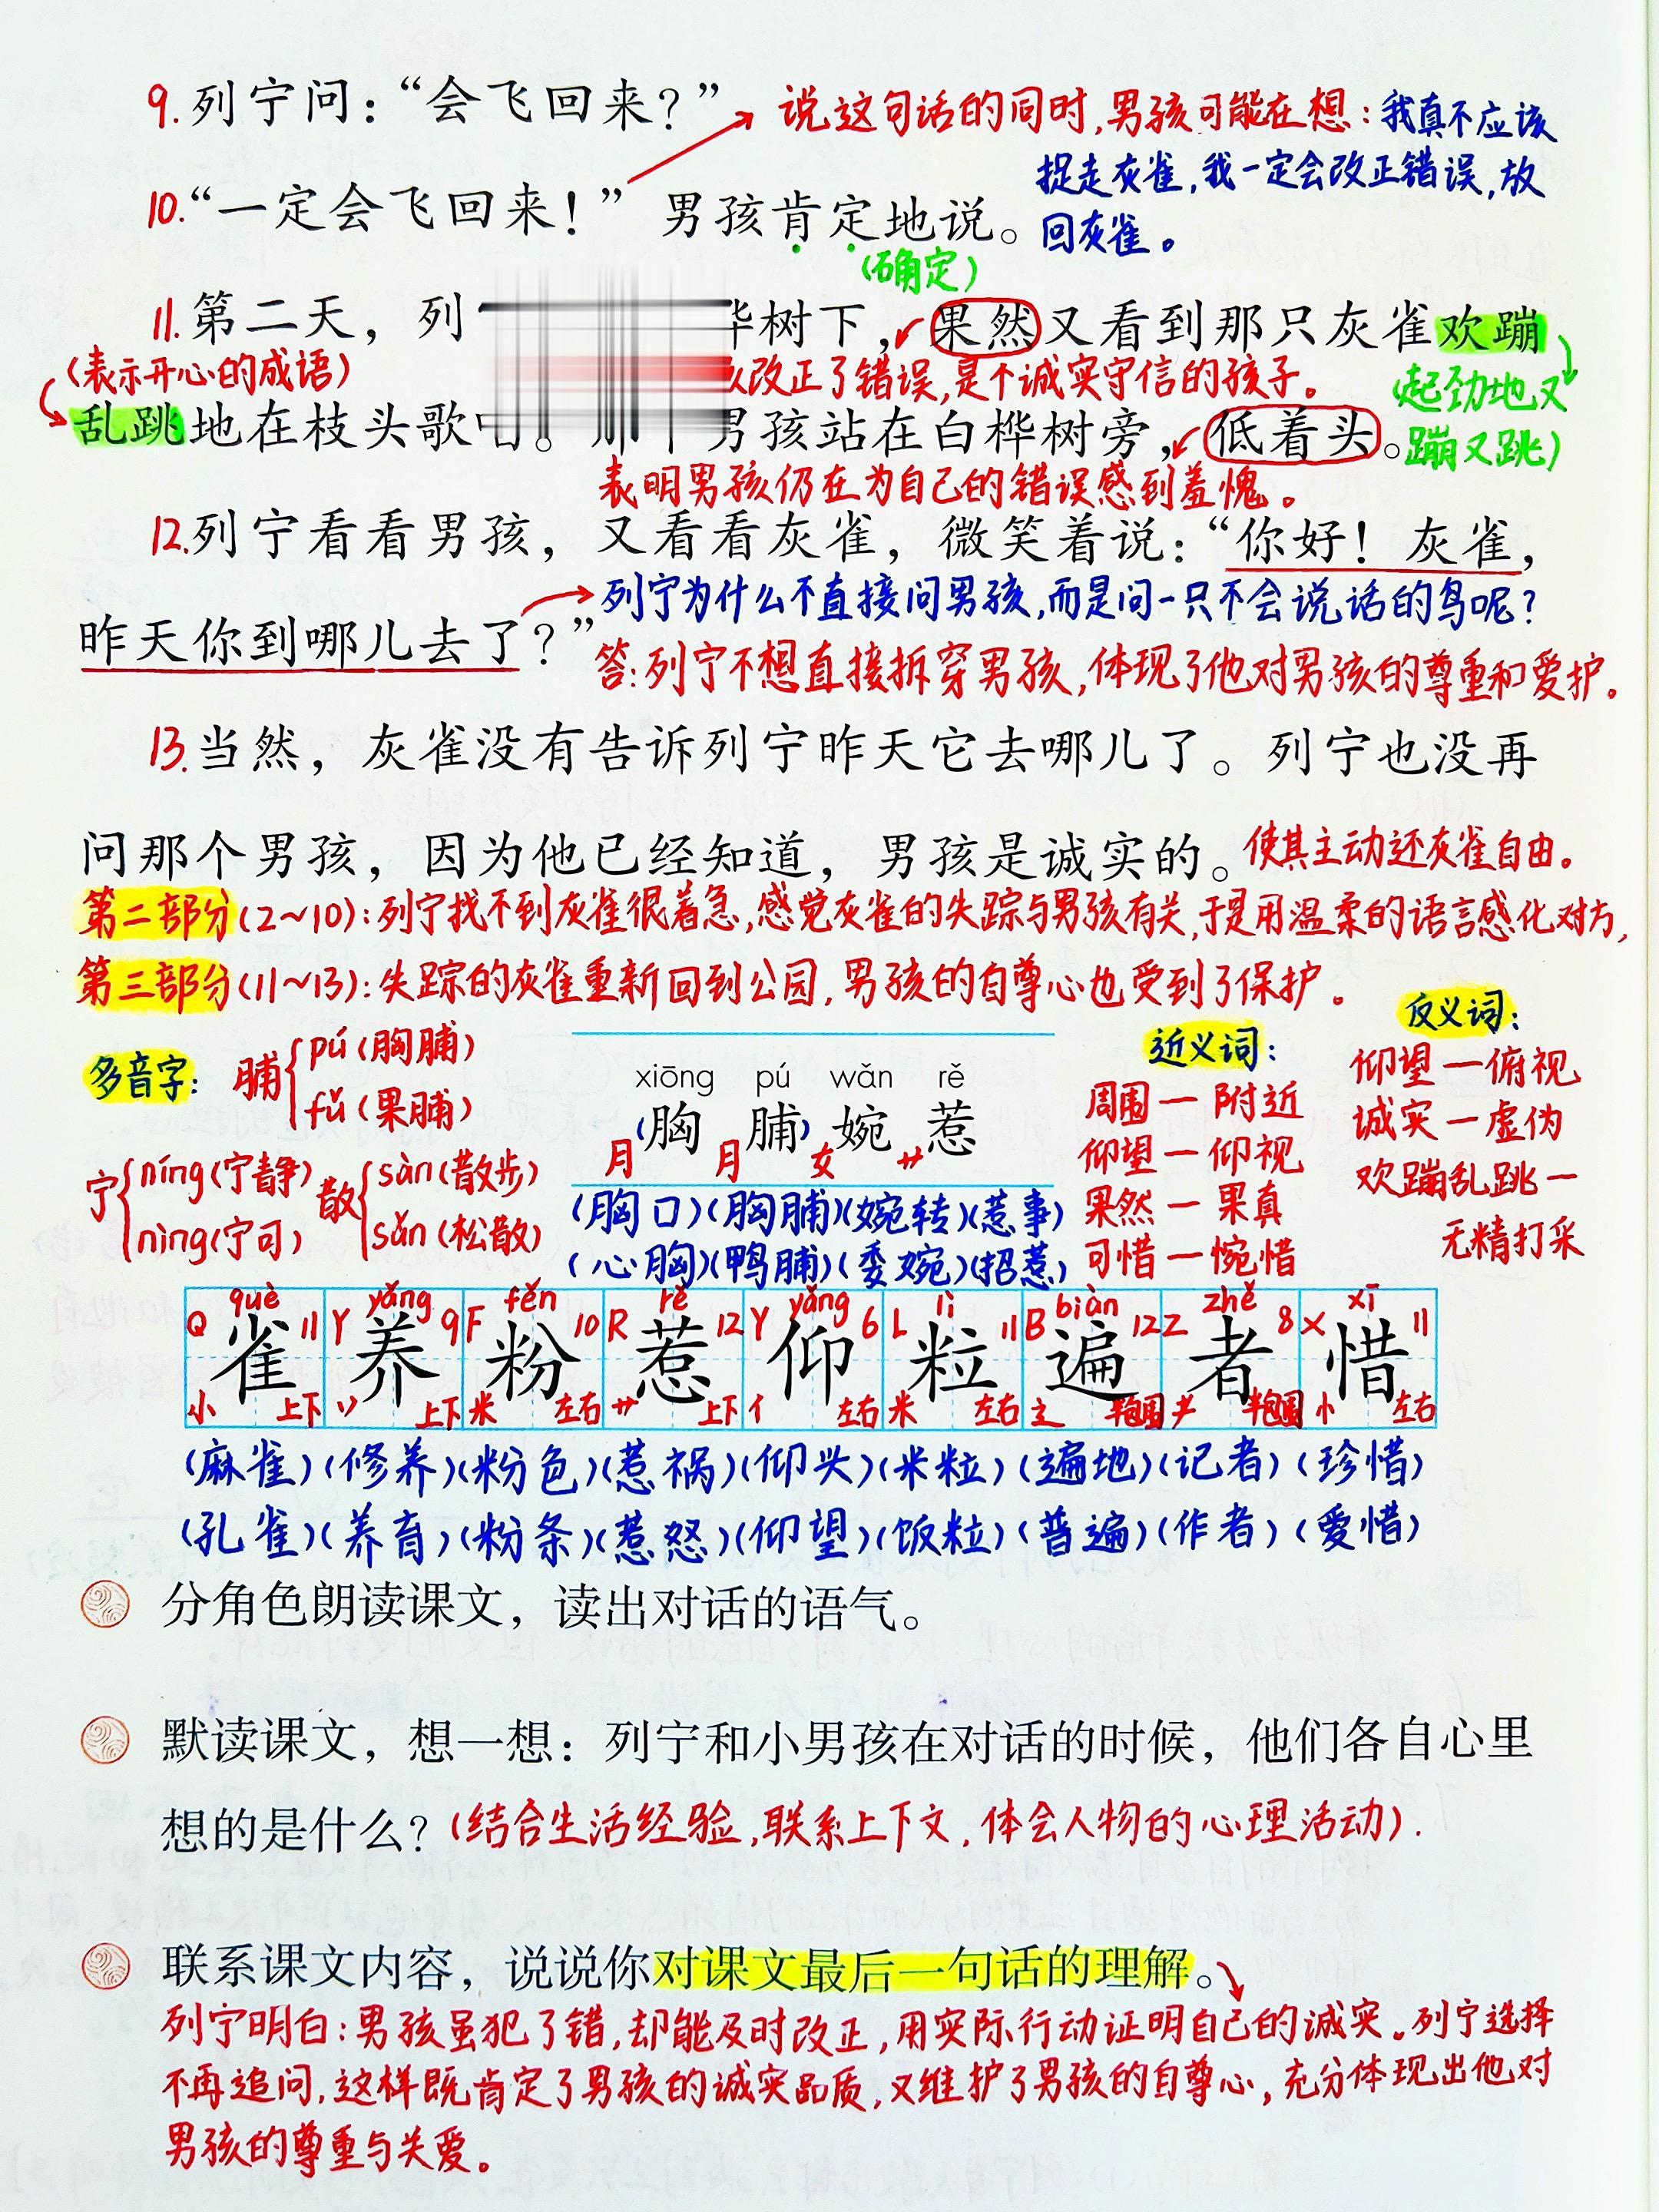 9.列宁问：“会飞回来？”
说这句话的同时,男孩可能在想：我真不应该
捉走灰雀,我一定会改正错误,放
回灰雀。
10.“一定会飞回来！”男孩肯定地说。
(确定)
11.第二天，列
桦树下，果然又看到那只灰雀欢蹦
(表示开心的成语)
改正了错误,是个诚实守信的孩子。
(起劲地又
蹦又跳)
乱跳地在枝头歌
男孩站在白桦树旁，低着头。
表明男孩仍在为自己的错误感到羞愧。
12.列宁看看男孩，又看看灰雀，微笑着说：“你好！灰雀，
昨天你到哪儿去了？”
列宁为什么不直接问男孩,而是问一只不会说话的鸟呢？
答：列宁不想直接拆穿男孩,体现了他对男孩的尊重和爱护。
13.当然，灰雀没有告诉列宁昨天它去哪儿了。列宁也没再
问那个男孩，因为他已经知道，男孩是诚实的。
使其主动还灰雀自由。
第二部分(2~10)：列宁找不到灰雀很着急,感觉灰雀的失踪与男孩有关,于是用温柔的语言感化对方,
第三部分(11~13)：失踪的灰雀重新回到公园,男孩的自尊心也受到了保护。
多音字：
脯 pú(胸脯)
fǔ(果脯)
宁 níng(宁静)
nìng(宁可)
散 sàn(散步)
sǎn(松散)
xiōng pú wǎn rě
(胸脯)婉惹
月 月 女 艹
(胸口)(胸脯)(婉转)(惹事)
(心胸)(鸭脯)(委婉)(招惹)
近义词：
周围—附近
仰望—仰视
果然—果真
可惜—惋惜
反义词：
仰望—俯视
诚实—虚伪
欢蹦乱跳—
无精打采
què yǎng fěn rě yǎng lì biàn zhě xī
Q 11 Y 9 F 10 R 12 Y 6 L 11 B 12 Z 8 X 11
雀 养 粉 惹 仰 粒 遍 者 惜
小 上下 丷 上下 米 左右 艹 上下 亻 左右 米 左右 辶 半包围 耂 半包围 忄 左右
(麻雀)(修养)(粉色)(惹祸)(仰头)(米粒)(遍地)(记者)(珍惜)
(孔雀)(养育)(粉条)(惹怒)(仰望)(饭粒)(普遍)(作者)(爱惜)
分角色朗读课文，读出对话的语气。
默读课文，想一想：列宁和小男孩在对话的时候，他们各自心里
想的是什么？(结合生活经验,联系上下文,体会人物的心理活动).
联系课文内容，说说你对课文最后一句话的理解。
列宁明白：男孩虽犯了错,却能及时改正,用实际行动证明自己的诚实。列宁选择
不再追问,这样既肯定了男孩的诚实品质,又维护了男孩的自尊心,充分体现出他对
男孩的尊重与关爱。